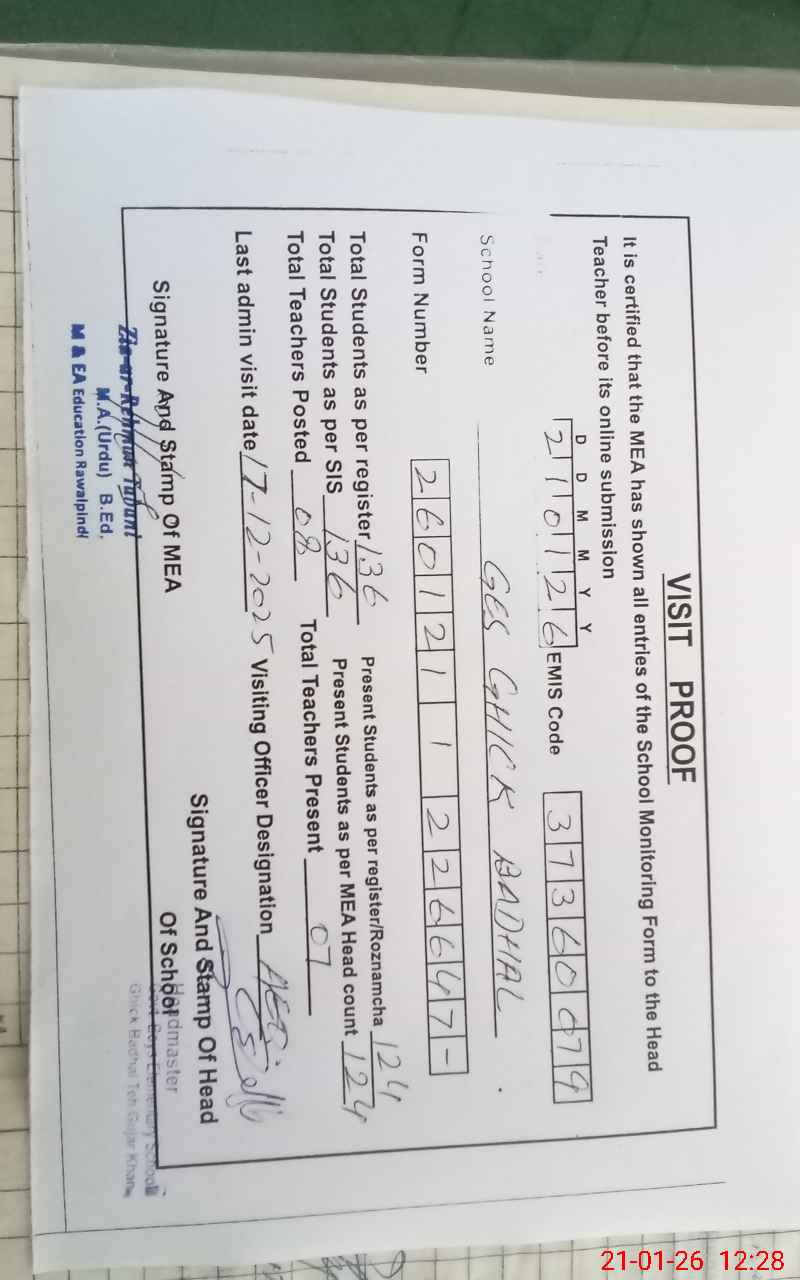 VISIT PROOF
It is certified that the MEA has shown all entries of the School Monitoring Form to the Head
Teacher before its online submission
D D M M Y Y
210126 EMIS Code 37360079
School Name GES GHICK BADHAL
Form Number 2601211226647-
Total Students as per register 136 Present Students as per register/Roznamcha 124
Total Students as per SIS 136 Present Students as per MEA Head count 124
Total Teachers Posted 08 Total Teachers Present 07
Last admin visit date 17-12-2025 Visiting Officer Designation
Signature And Stamp Of MEA
Signature And Stamp Of Head
Of School
Zia-ur-Rehman
M.A.(Urdu) B.Ed.
M & EA Education Rawalpindi
Headmaster
Govt Boys Elementary School
Ghick Badhal Teh Gujar Khan
21-01-26 12:28